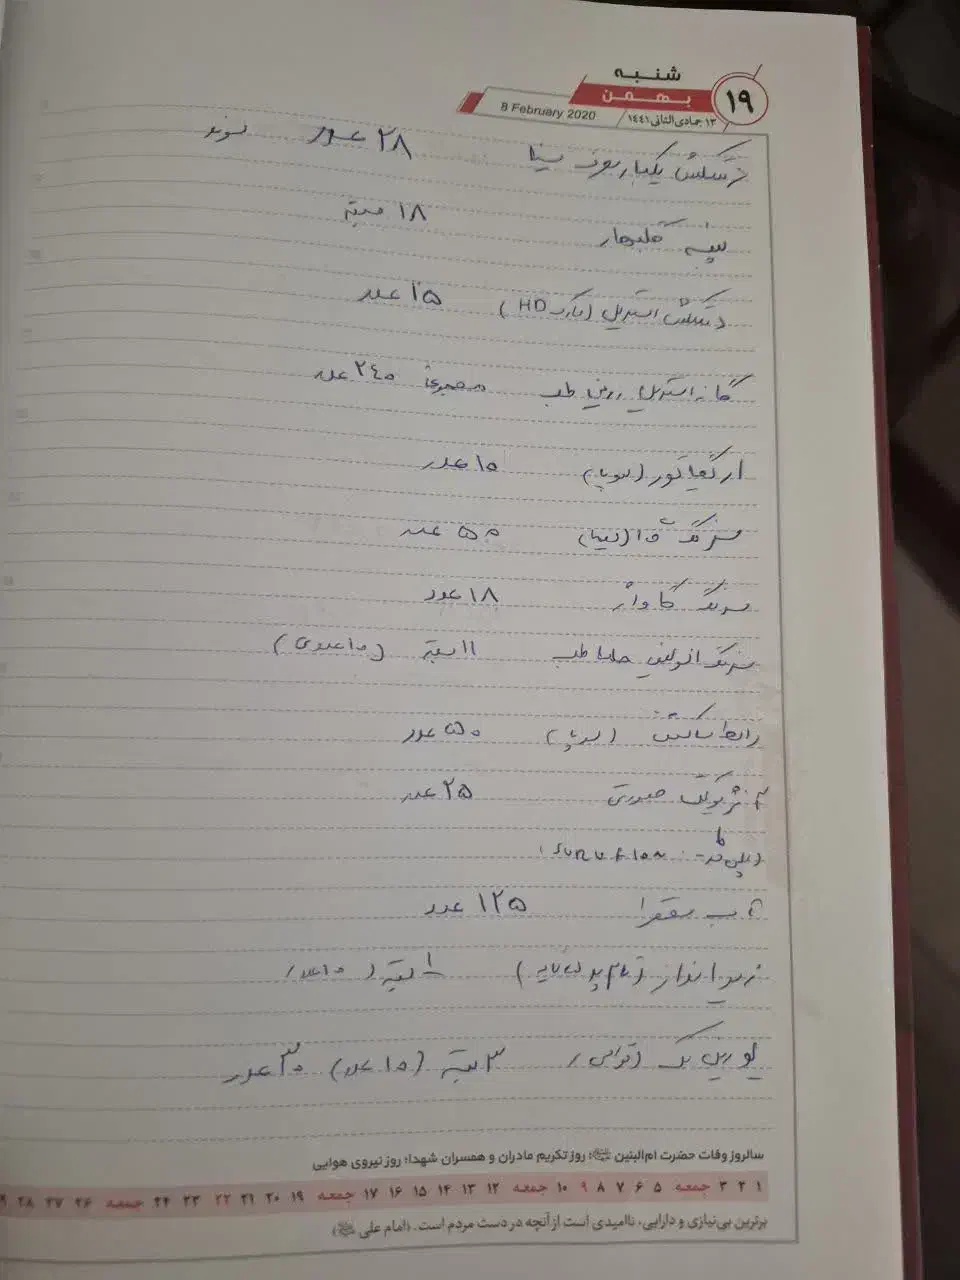 شنبه
۱۹
بهمن
8 February 2020
۱۳ جمادی الثانی ۱۴۴۱
دستکش یکبار مصرف سینا ۲۸ عدد
پنبه گلبهار ۱۸ بسته
دستکش استریل (مارک HD) ۱۵ عدد
گاز استریل زرین طب مجموعا ۲۴۰ عدد
(سوپا) ۱۰ عدد
سرنگ ۱۰ ۵۰ عدد
سرنگ گاواژ ۱۸ عدد
سرنگ انولین حلما طب ۱۱ بسته (۱۰ عددی)
رابط ساکشن (سوپا) ۵۰ عدد
آنژیوکت صورتی ۲۵ عدد
آب مقطر ۱۲۵ عدد
زیر انداز ۱ بسته (۱۰ عدد)
یورین بگ ۳ بسته (۱۰ عدد) ۳۰ عدد
سالروز وفات حضرت ام‌البنین ﷺ؛ روز تکریم مادران و همسران شهدا؛ روز نیروی هوایی
۱ ۲ ۳ جمعه ۵ ۶ ۷ ۸ ۹ ۱۰ جمعه ۱۲ ۱۳ ۱۴ ۱۵ ۱۶ ۱۷ جمعه ۱۹ ۲۰ ۲۱ ۲۲ ۲۳ ۲۴ جمعه ۲۶ ۲۷ ۲۸
برترین بی‌نیازی و دارایی، ناامیدی است از آنچه در دست مردم است. (امام علی ﷺ)